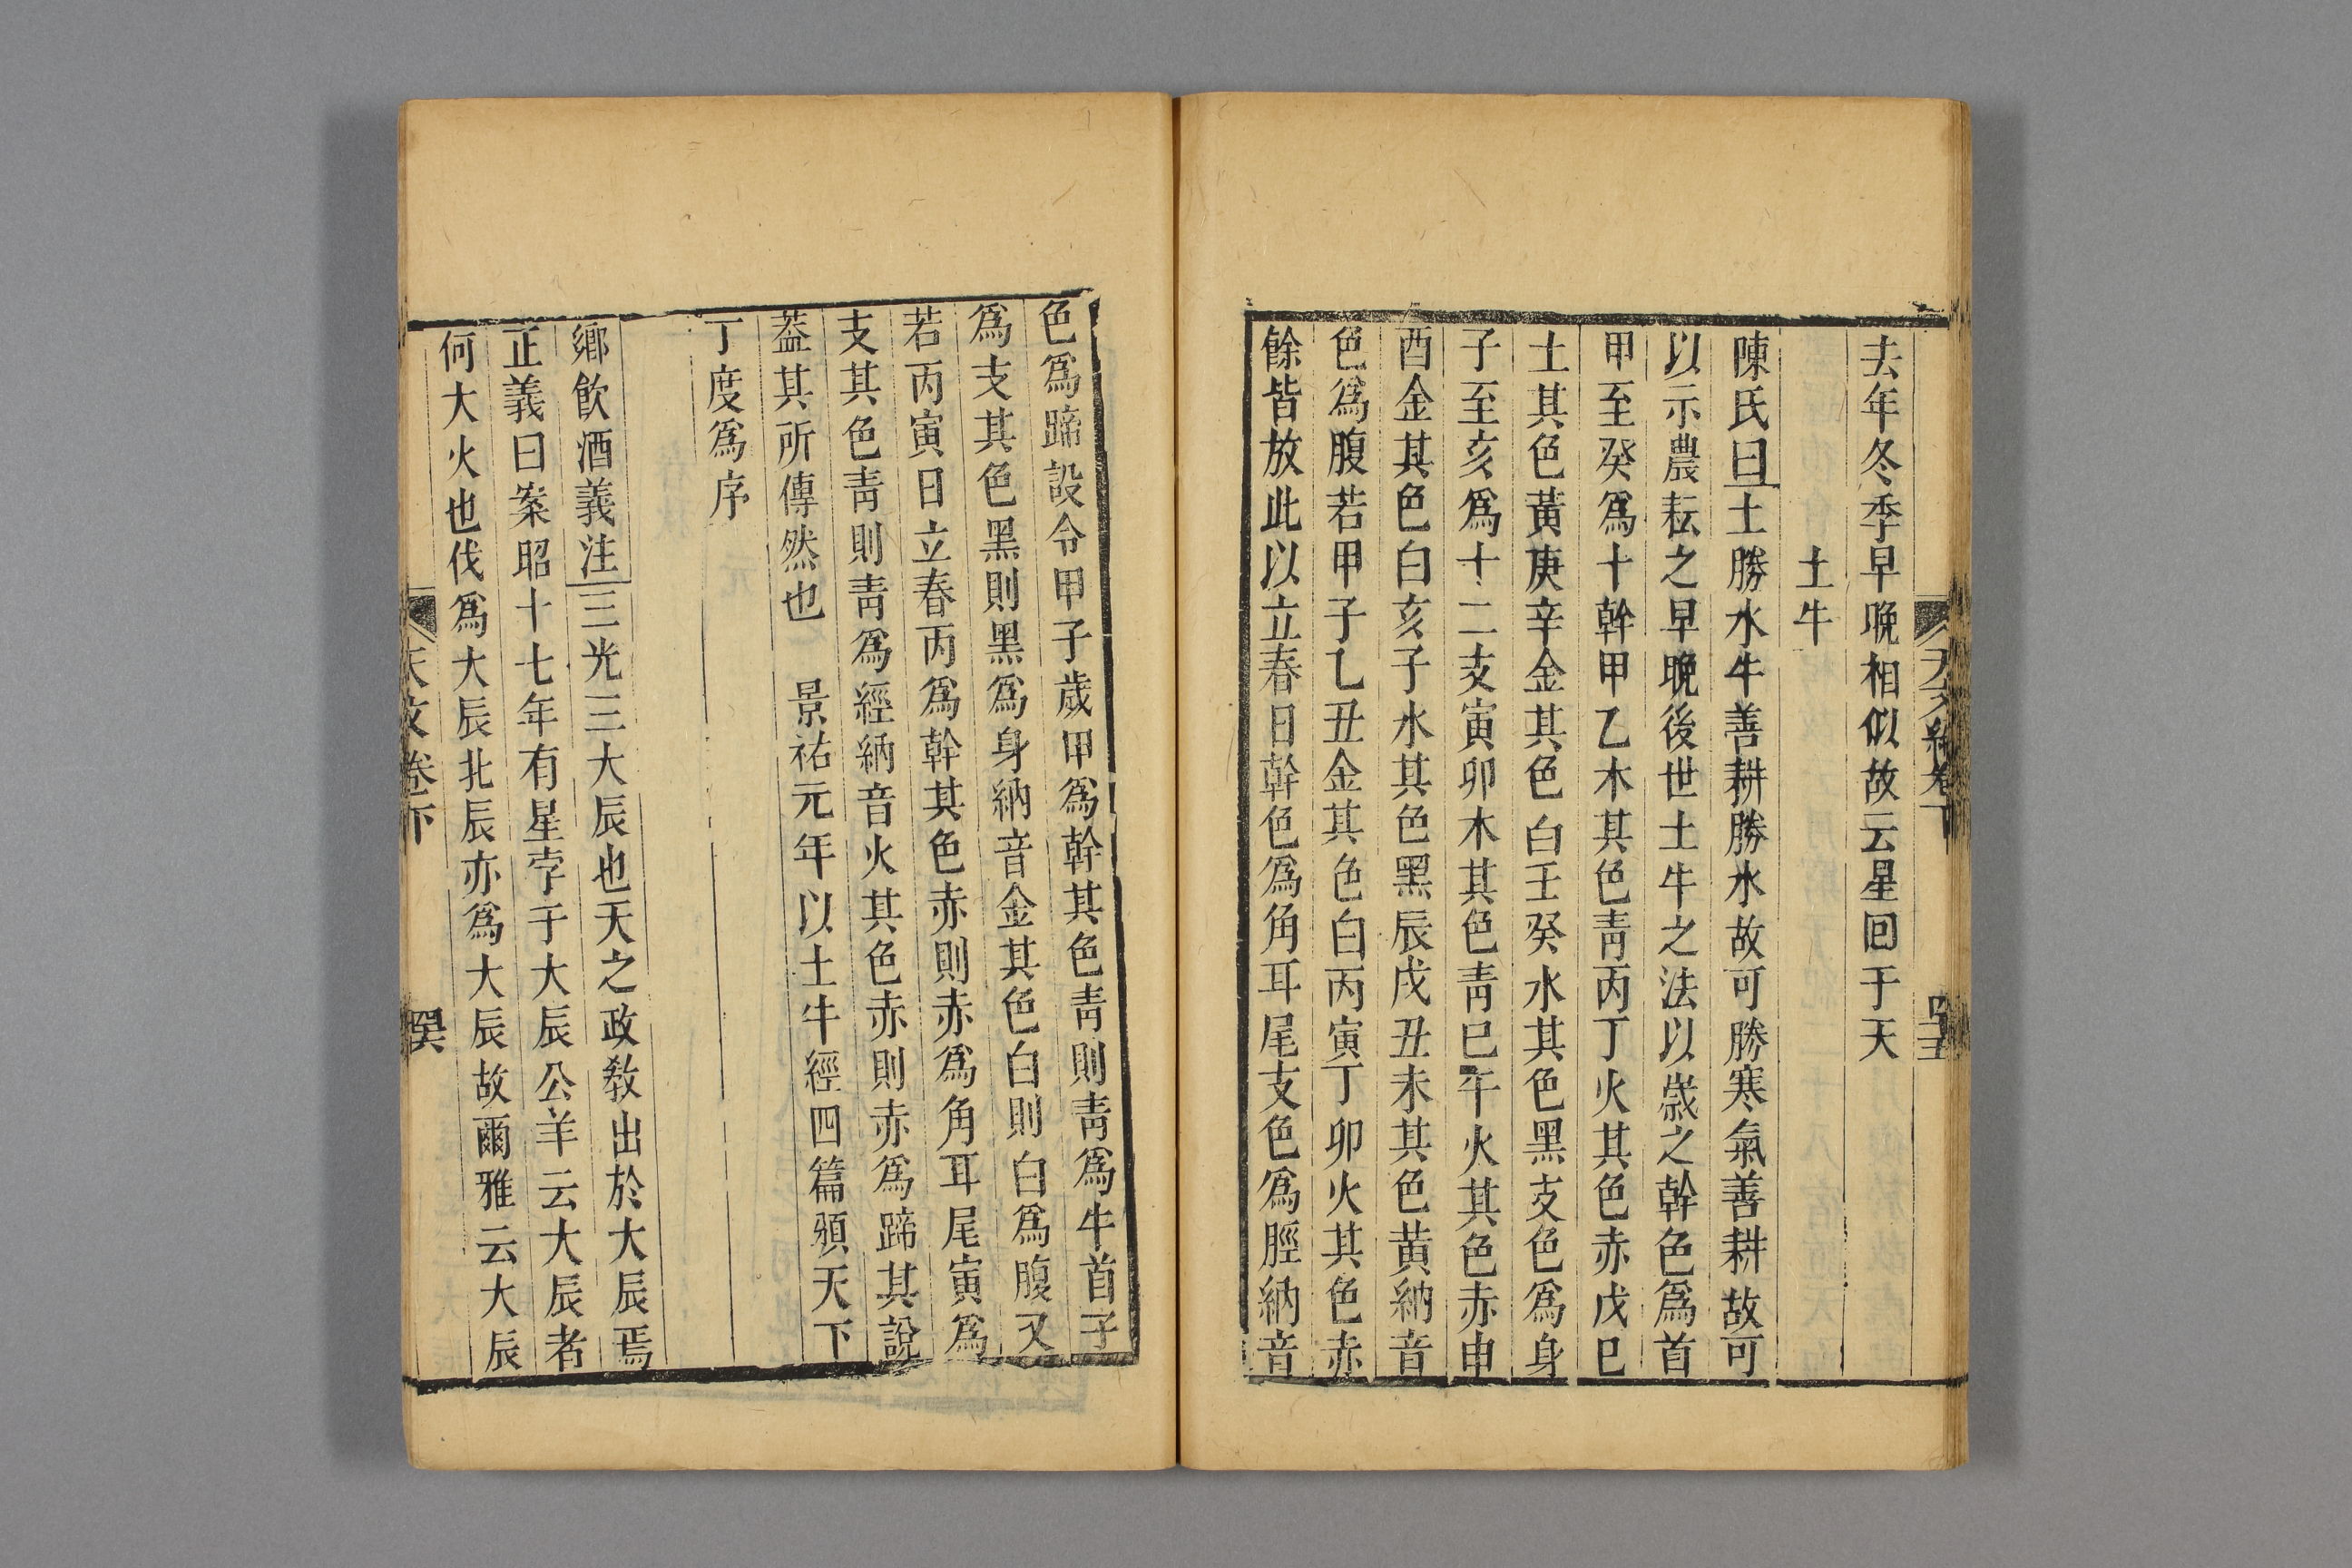 去年冬季早晚相似故云星回于天
土牛
陳氏曰土勝水牛善耕勝水故可勝寒氣善耕故可
以示農耘之早晚後世土牛之法以歲之幹色爲首
甲至癸爲十幹甲乙木其色靑丙丁火其色赤戊巳
土其色黃庚辛金其色白壬癸水其色黑支色爲身
子至亥爲十二支寅卯木其色靑巳午火其色赤申
酉金其色白亥子水其色黑辰戌丑未其色黃納音
色爲腹若甲子乙丑金其色白丙寅丁卯火其色赤
餘皆放此以立春日幹色爲角耳尾支色爲脛納音
色爲蹄設令甲子歲甲爲幹其色靑則靑爲牛首子
爲支其色黑則黑爲身納音金其色白則白爲腹又
若丙寅日立春丙爲幹其色赤則赤爲角耳尾寅爲
支其色靑則靑爲經納音火其色赤則赤爲蹄其說
葢其所傳然也 景祐元年以土牛經四篇頒天下
丁度爲序
鄉飮酒義注三光三大辰也天之政敎出於大辰焉
正義曰案昭十七年有星孛于大辰公羊云大辰者
何大火也伐爲大辰北辰亦爲大辰故爾雅云大辰
天文卷下